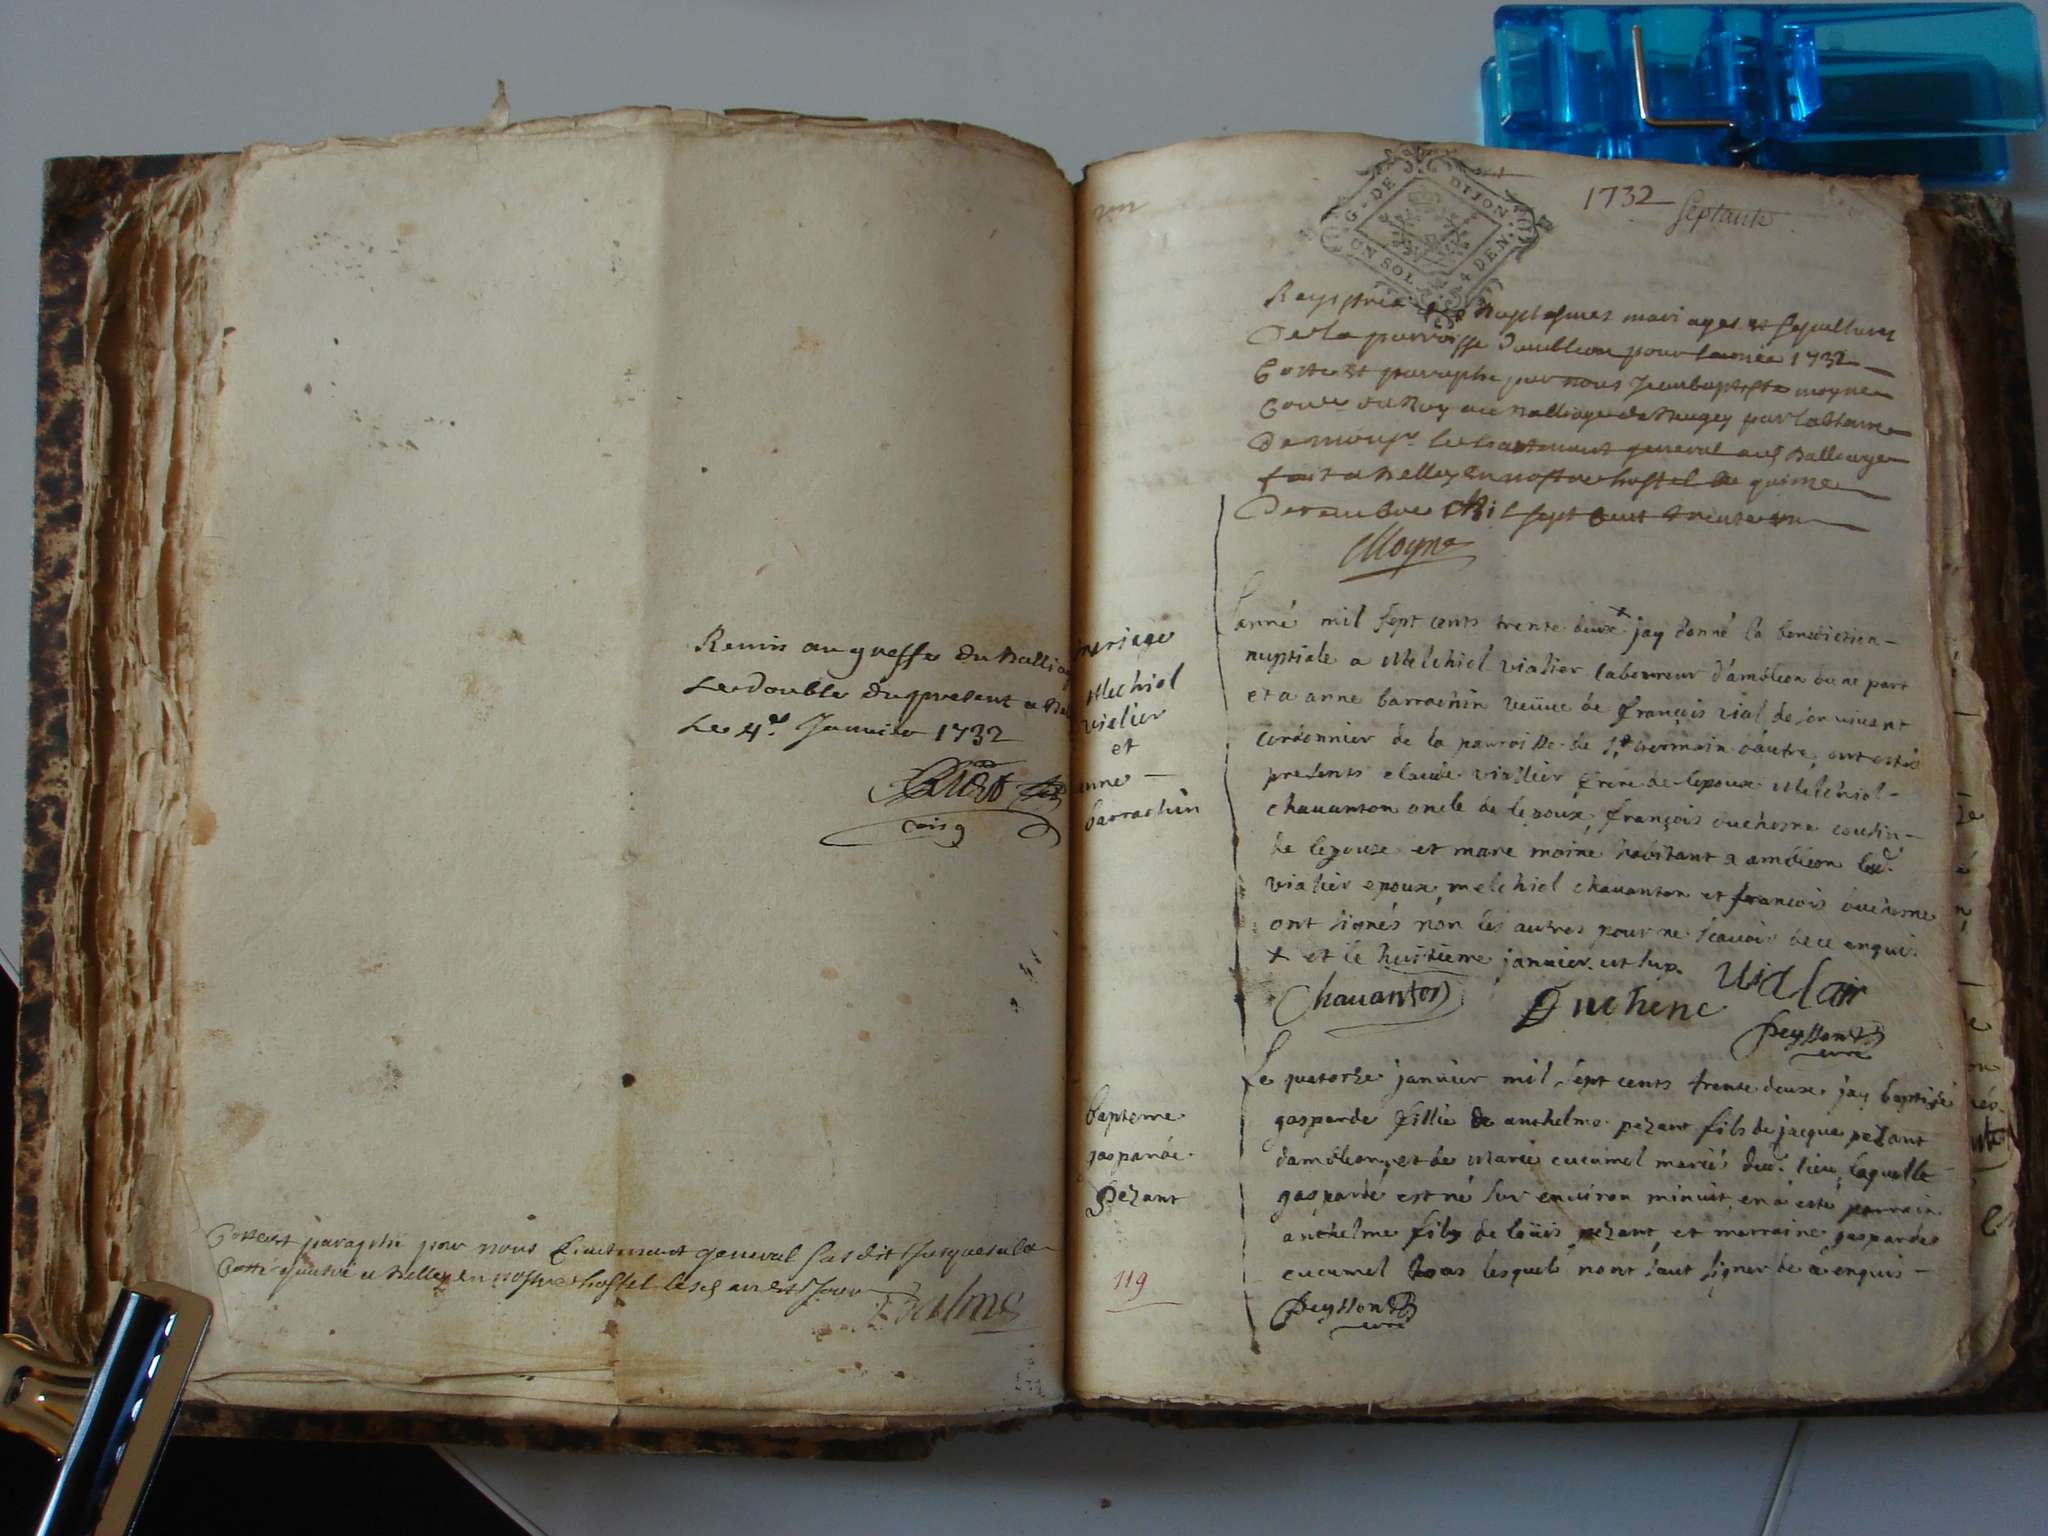 Remis au greffe du Balliage
Le double du present a
Le 4e. Janvier 1732
Cotte et paraphé par nous Lieutenant general susdit Jusques a la
Cotte a Belley en nostre hostel les an et Jour
G. DE DIJON
UN SOL 4 DEN.
1732
Septante
Registre Baptesmes mariages et sepultures
De la parroisse Dambleon pour Lannée 1732
Cotte et paraphe par nous Jean baptiste moyne
du Roy au Balliage de Bugey par labsence
De monsr. le Lieutenant general aud Balliage
fait a Belley En nostre hostel le quinze
Decembre Mil sept Cent trente un
Moyne
mariage
Melchiol
vialier
et
anne
barrachin
Lanné mil sept cents trente deux + jay donné la benediction
nuptiale a Melchiol vialier laboureur d'ambleon dune part
et a anne barrachin veüve de françois vial de son vivent
cordonnier de la parroisse de st. germain d'autre, ont estés
presents claude viallier frere de lepoux Melchiol
chauanton oncle de lepoux, françois duchesne cousin
de lepouse et marc moine habitant a ambleon led.
vialier epoux, melchiol chauanton et francois duchesne
ont signés non les autres pour ne scauoir de ce enquis.
+ et le huitieme januier. ut sup.
Chauanton Duchene Viallair
Peysson
curé
bapteme
gasparde
Pezant
Le quatorze januier mil sept cents trente deux jay baptisé
gasparde fillie de anthelme pezant fils de jacque pezant
dambleon, et de Marie cucumel mariés dud. lieu, laquelle
gasparde est né sur enuiron minuit, en a esté parrain
anthelme fils de loüis pezant, et marraine gasparde
cucumel lesquels n'ont sçaut signer de ce enquis
Peysson
curé
119